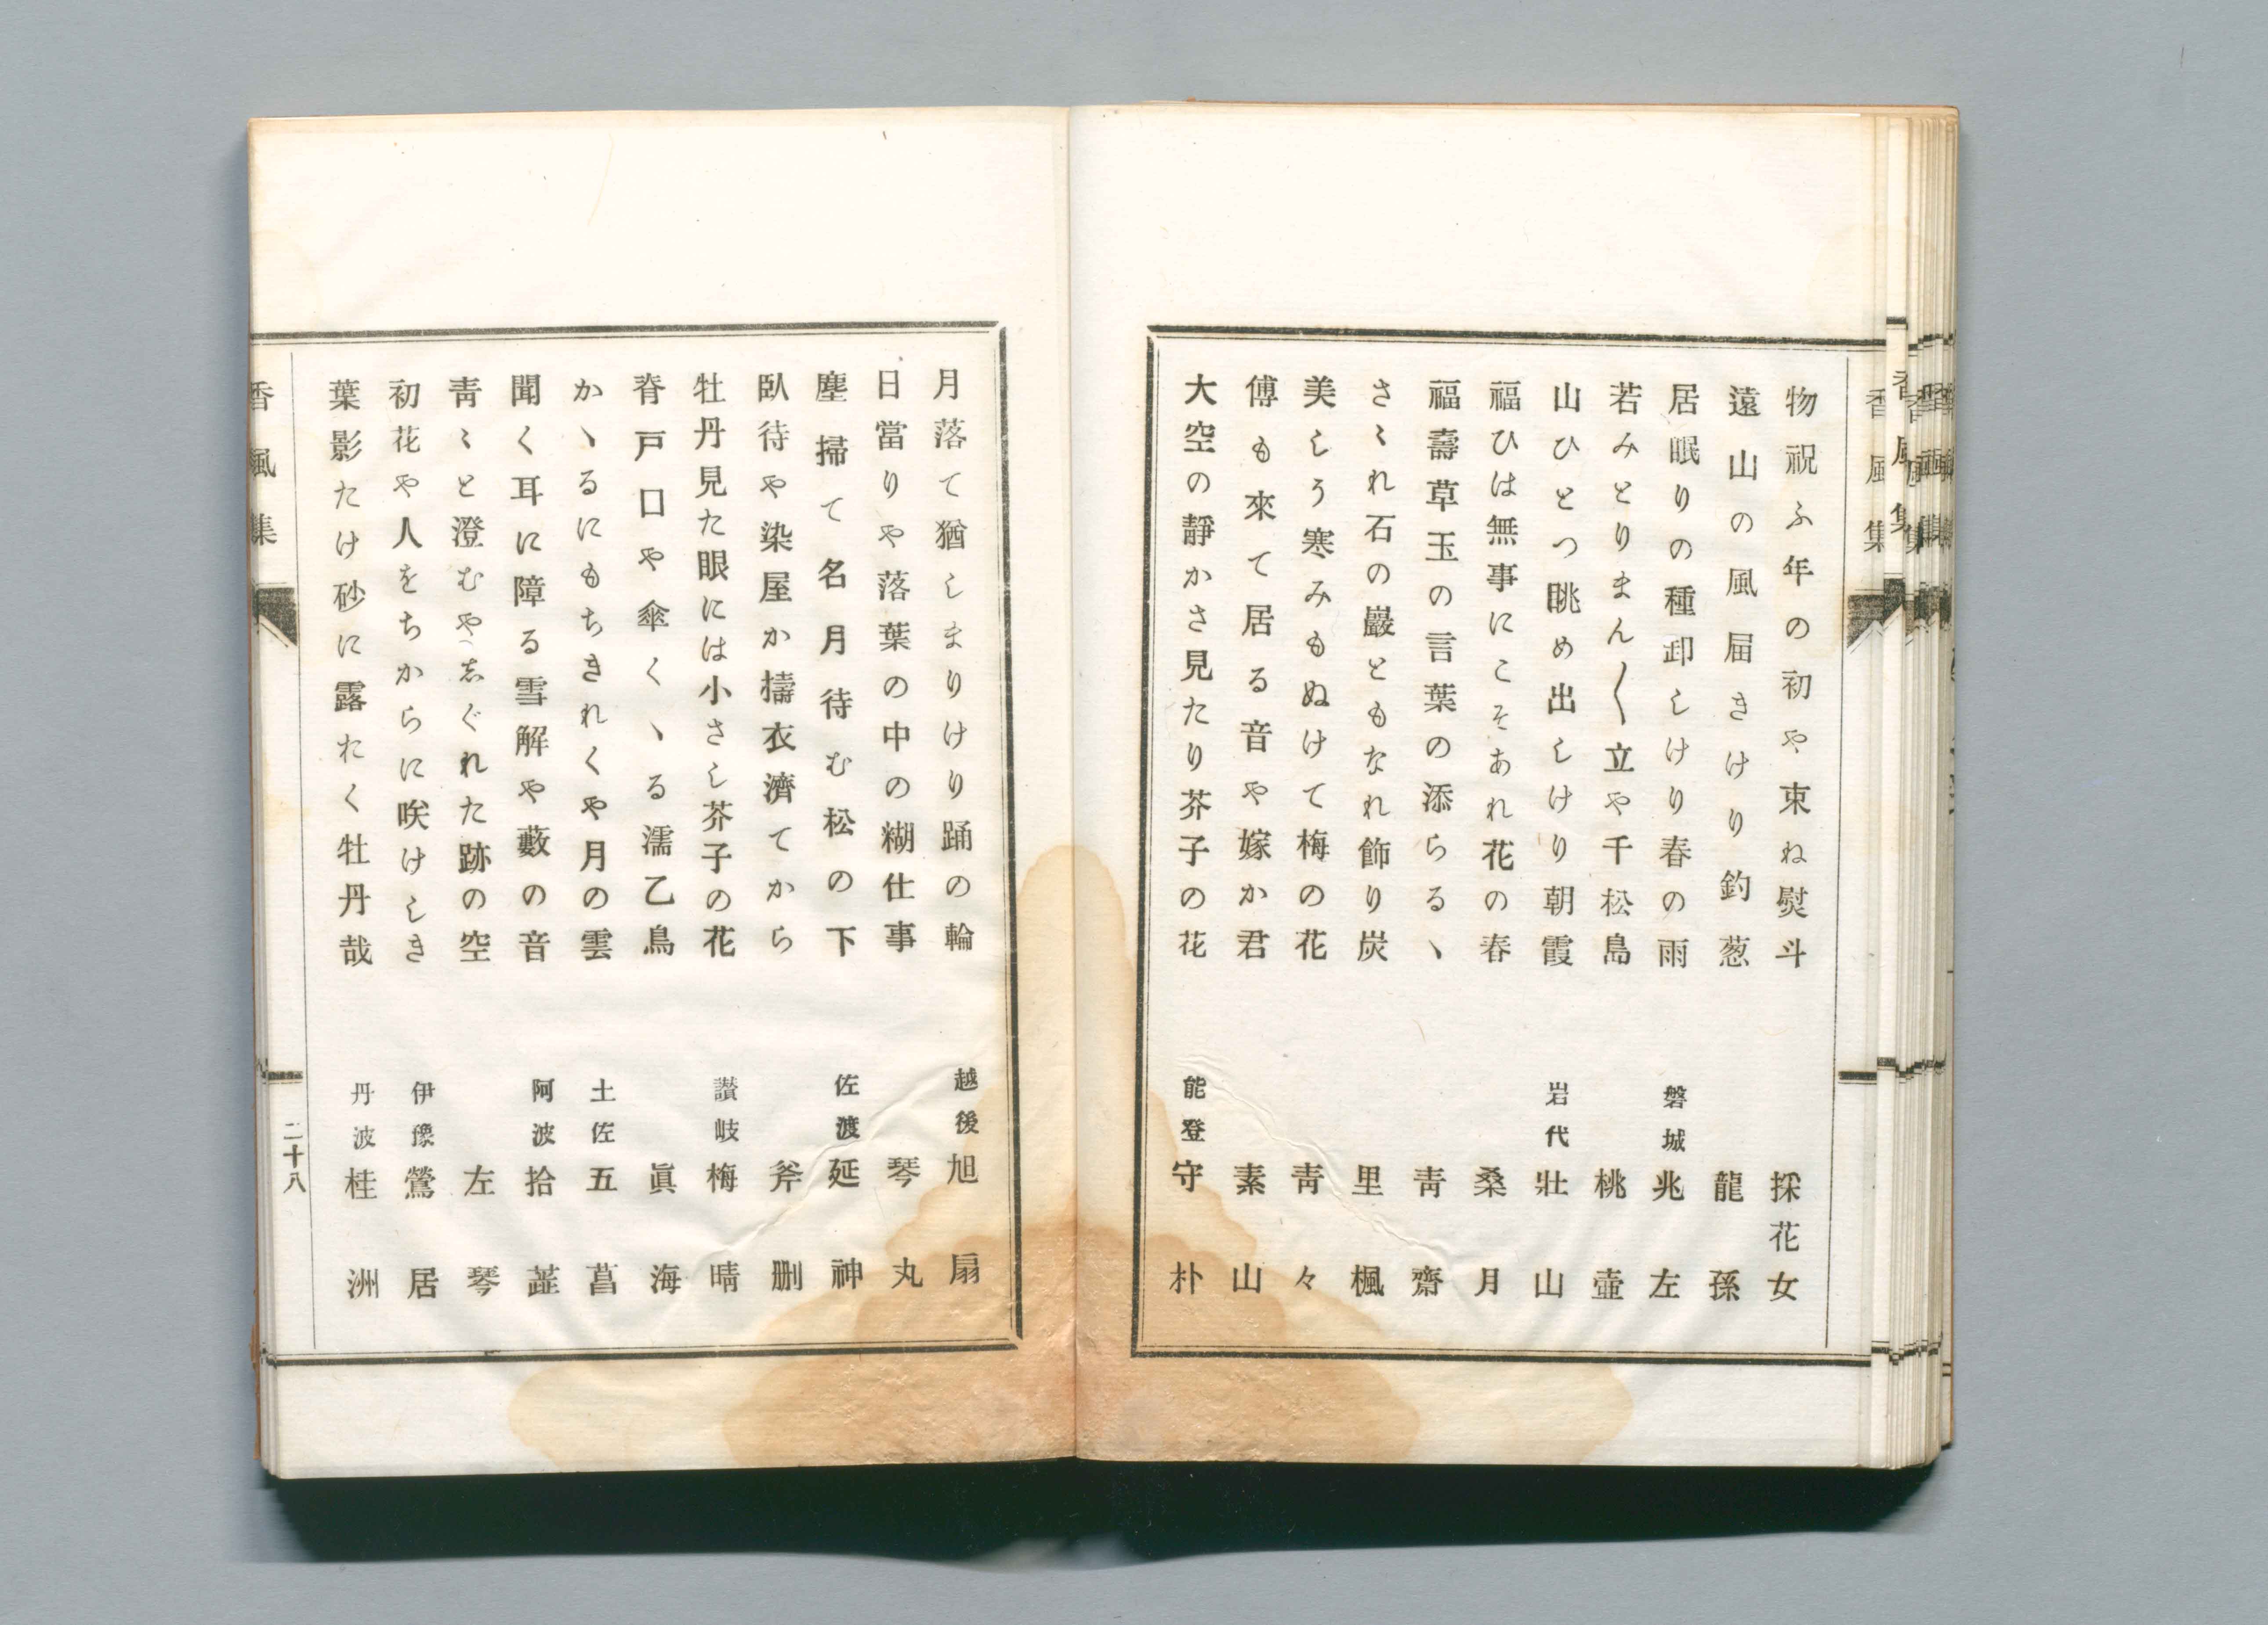 香風集
物祝ふ年の初や束ね熨斗 採花女
遠山の風届きけり釣葱 龍孫
居眠りの種卸しけり春の雨 磐城 兆左
若みとりまん〱立や千松島 桃壷
山ひとつ眺め出しけり朝霞 岩代 壯山
福ひは無事にこそあれ花の春 桑月
福壽草玉の言葉の添らるゝ 靑齋
さゞれ石の巖ともなれ飾り炭 里楓
美しう寒みもぬけて梅の花 靑々
傅も來て居る音や嫁か君 素山
大空の靜かさ見たり芥子の花 能登 守朴
月落て猶しまりけり踊の輪 越後 旭扇
日當りや落葉の中の糊仕事 琴丸
塵掃て名月待む松の下 佐渡 延神
臥待や染屋か擣衣濟てから 斧刪
牡丹見た眼には小さし芥子の花 讃岐 梅晴
脊戸口や傘くゝる濡乙鳥 眞海
かゝるにもちきれくや月の雲 土佐 五菖
聞く耳に障る雪解や藪の音 阿波 拾蘁
靑〻と澄むや志ぐれた跡の空 左琴
初花や人をちからに咲けしき 伊豫 鶯居
葉影たけ砂に露れく牡丹哉 丹波 桂洲
香風集
二十八